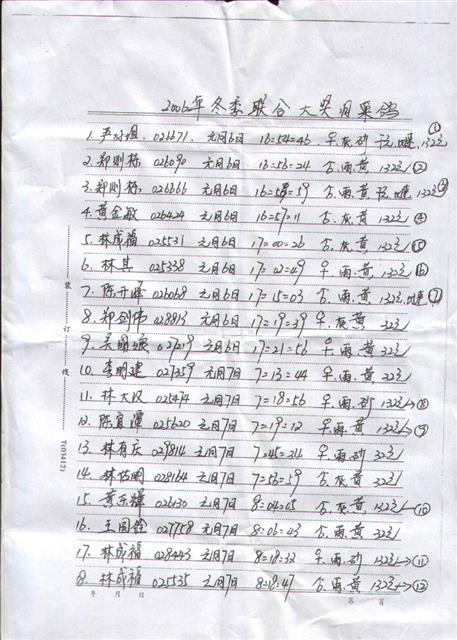 2006年冬季联合大奖归巢鸽
1. 026671 元月6日 16=54=46 灰砂 132元 ①
2. 郑则栋 026090 元月6日 16=56=24 雨黄 132元 ②
3. 郑则栋 026666 元月6日 16=58=59 雨黄 132元 ③
4. 黄金敏 026424 元月6日 16=57=11 灰黄 132元 ④
5. 林成福 025531 元月6日 17=00=26 灰黄 132元 ⑤
6. 林其 025338 元月6日 17=02=49 雨.黄 132元 ⑥
7. 陈开泽 026068 元月6日 17=15=03 雨.黄 132元 ⑦
8. 郑剑伟 028813 元月6日 17=19=39 灰黄 32元
9. 027219 元月6日 17=21=56 雨.黄 32元
10. 李明建 027359 元月7日 7=13=44 雨.黄 32元
11. 林大汉 025474 元月7日 7=18=56 雨.砂 132元→⑧
12. 陈宜潭 025620 元月7日 7=19=12 雨.黄 132元→⑨
13. 林有庆 029814 元月7日 7=45=34 雨砂 32元
14. 028164 元月7日 7=56=59 灰黄 32元
15. 黄乐辉 026430 元月7日 8=04=05 灰黄 132元→⑩
16. 王国铨 027758 元月7日 8=06=43 雨.黄 32元
17. 林成福 028443 元月7日 8=18=32 雨.砂 132元→⑪
18. 林成福 025535 元月7日 8=18=47 雨.黄 132元→⑫
装 订 线
T(0344(2)
年 月 日 第 页